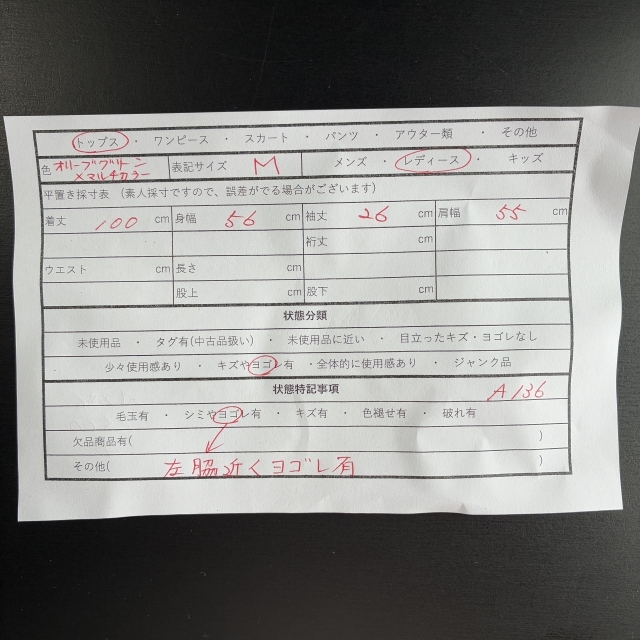 トップス ・ ワンピース ・ スカート ・ パンツ ・ アウター類 ・ その他
色 オリーブグリーン×マルチカラー 表記サイズ M メンズ ・ レディース ・ キッズ
平置き採寸表 (素人採寸ですので、誤差がでる場合がございます)
着丈 100 cm 身幅 56 cm 袖丈 26 cm 肩幅 55 cm
裄丈 cm
ウエスト cm 長さ cm
股上 cm 股下 cm
状態分類
未使用品 ・ タグ有(中古品扱い) ・ 未使用品に近い ・ 目立ったキズ・ヨゴレなし
少々使用感あり ・ キズやヨゴレ有 ・全体的に使用感あり ・ ジャンク品
状態特記事項 A136
毛玉有 ・ シミやヨゴレ有 ・ キズ有 ・ 色褪せ有 ・ 破れ有
欠品商品有( )
その他( 左脇近くヨゴレ有 )